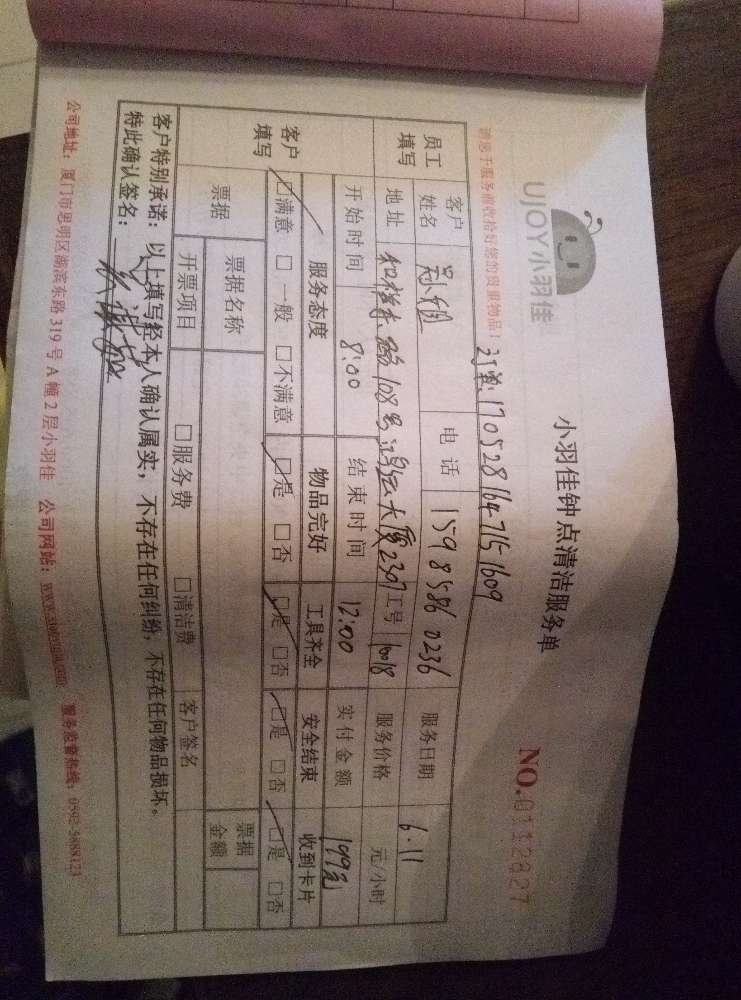 UJOY小羽佳
小羽佳钟点清洁服务单
NO.0112827
请您于服务前收拾好您的贵重物品!
订单:170528164715 1609
员工填写
客户姓名
电话 159 8586 0236
服务日期 6.11
地址 108号 大厦2307
工号 16018
服务价格 元/小时
开始时间 8:00
结束时间 12:00
实付金额 199元
客户填写
服务态度 物品完好 工具齐全 安全结束 收到卡片
□满意 □一般 □不满意 □是 □否 □是 □否 □是 □否 □是 □否
票据
票据名称
票据金额
开票项目 □服务费 □清洁费 客户签名
客户特别承诺:以上填写经本人确认属实,不存在任何纠纷,不存在任何物品损坏。
特此确认签名:
公司地址:厦门市思明区湖滨东路319号A幢2层小羽佳 公司网站: 服务监督热线:0592-5888123